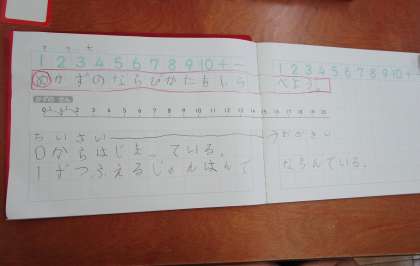 1 2 3 4 5 6 7 8 9 10 + −
めかずのならびかたをしら
かずのせん
0 1 2 3 4 5 6 7 8 9 10 11 12 13 14 15 16 17 18 19 20
ちいさい
0からはじまっている。
1ずつふえるじゅんばんで
1 2 3 4 5 6 7 8 9 10 +
べよう。
おおきい
ならんでいる。